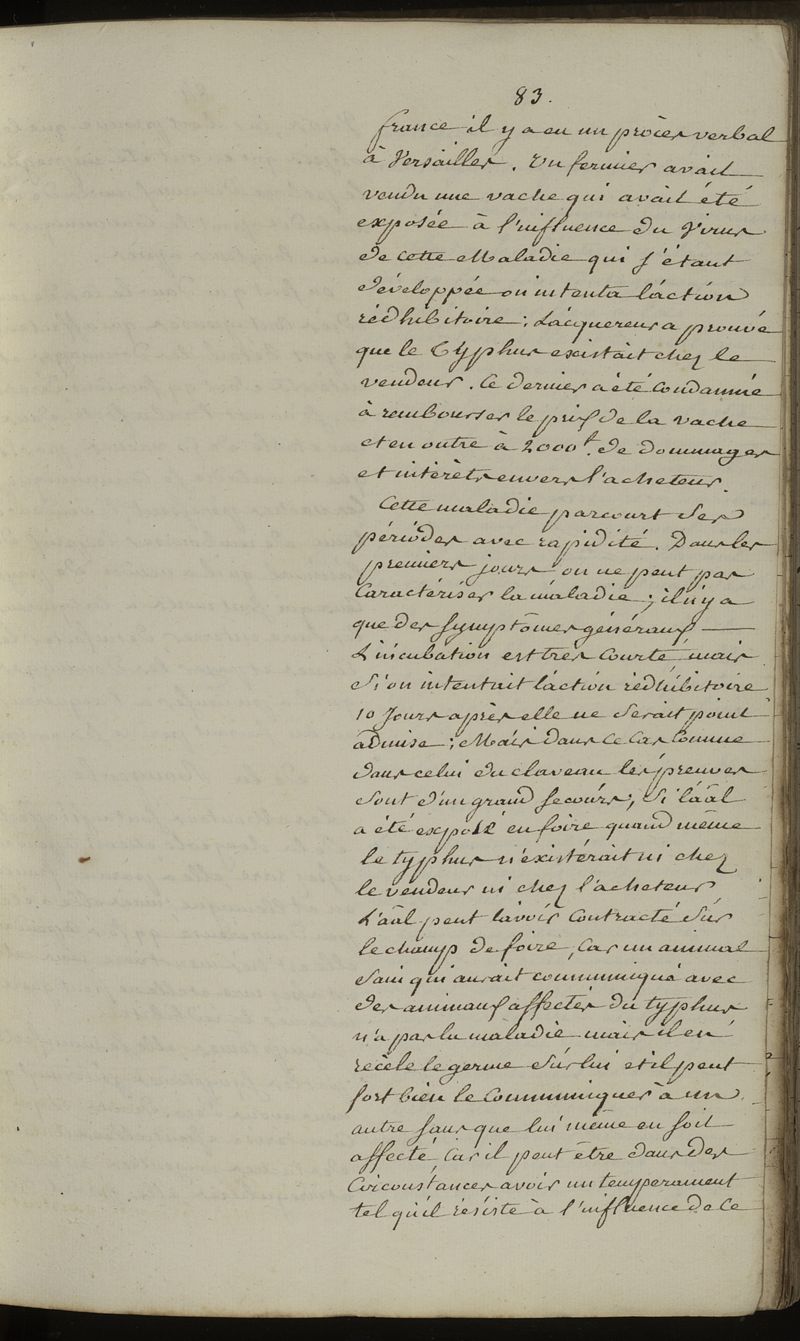 83.
france il y a eu un procès verbal
à Versailles. Un fermier avait
vendu une vache qui avait été
exposée à l'influence du Virus
de cette Maladie qui s'étant
développée on intenta l'action
rédhibitoire; L'acquereur a prouvé
que le Typhus existait chez le
vendeur. Ce dernier a été Condamné
à rembourser le prix de la vache
et en outre à 2000f. de dommages
et intérèts envers l'acheteur.
Cette maladie parcourt ses
périodes avec rapidité. Dans les
premiers jours on ne peut pas
Caractériser la maladie; il n'y a
que des symptômes généraux
L'incubation est très Courte mais
si on intentait l'action rédhibitoire
10 Jours après elle ne serait point
admise; Mais dans ce cas Comme
dans celui du claveau les preuves
sont d'un grand secours; si l'aâl
a été exposé en foire quand même
le typhus n'existérait ni chez
le vendeur ni chez l'acheteur
L'aâl peut l'avoir Contracté sur
le champ de foire, Car un animal
sain qui aurait communiqué avec
des animaux affectés du typhus
n'a pas la maladie mais il en
recèle le germe sur lui et il peut
fort bien le Communiquer à un
autre sans que lui même en soit
affecté Car il peut être dans des
Circonstances avoir un temperament
tel qu'il résiste à l'influence de ce